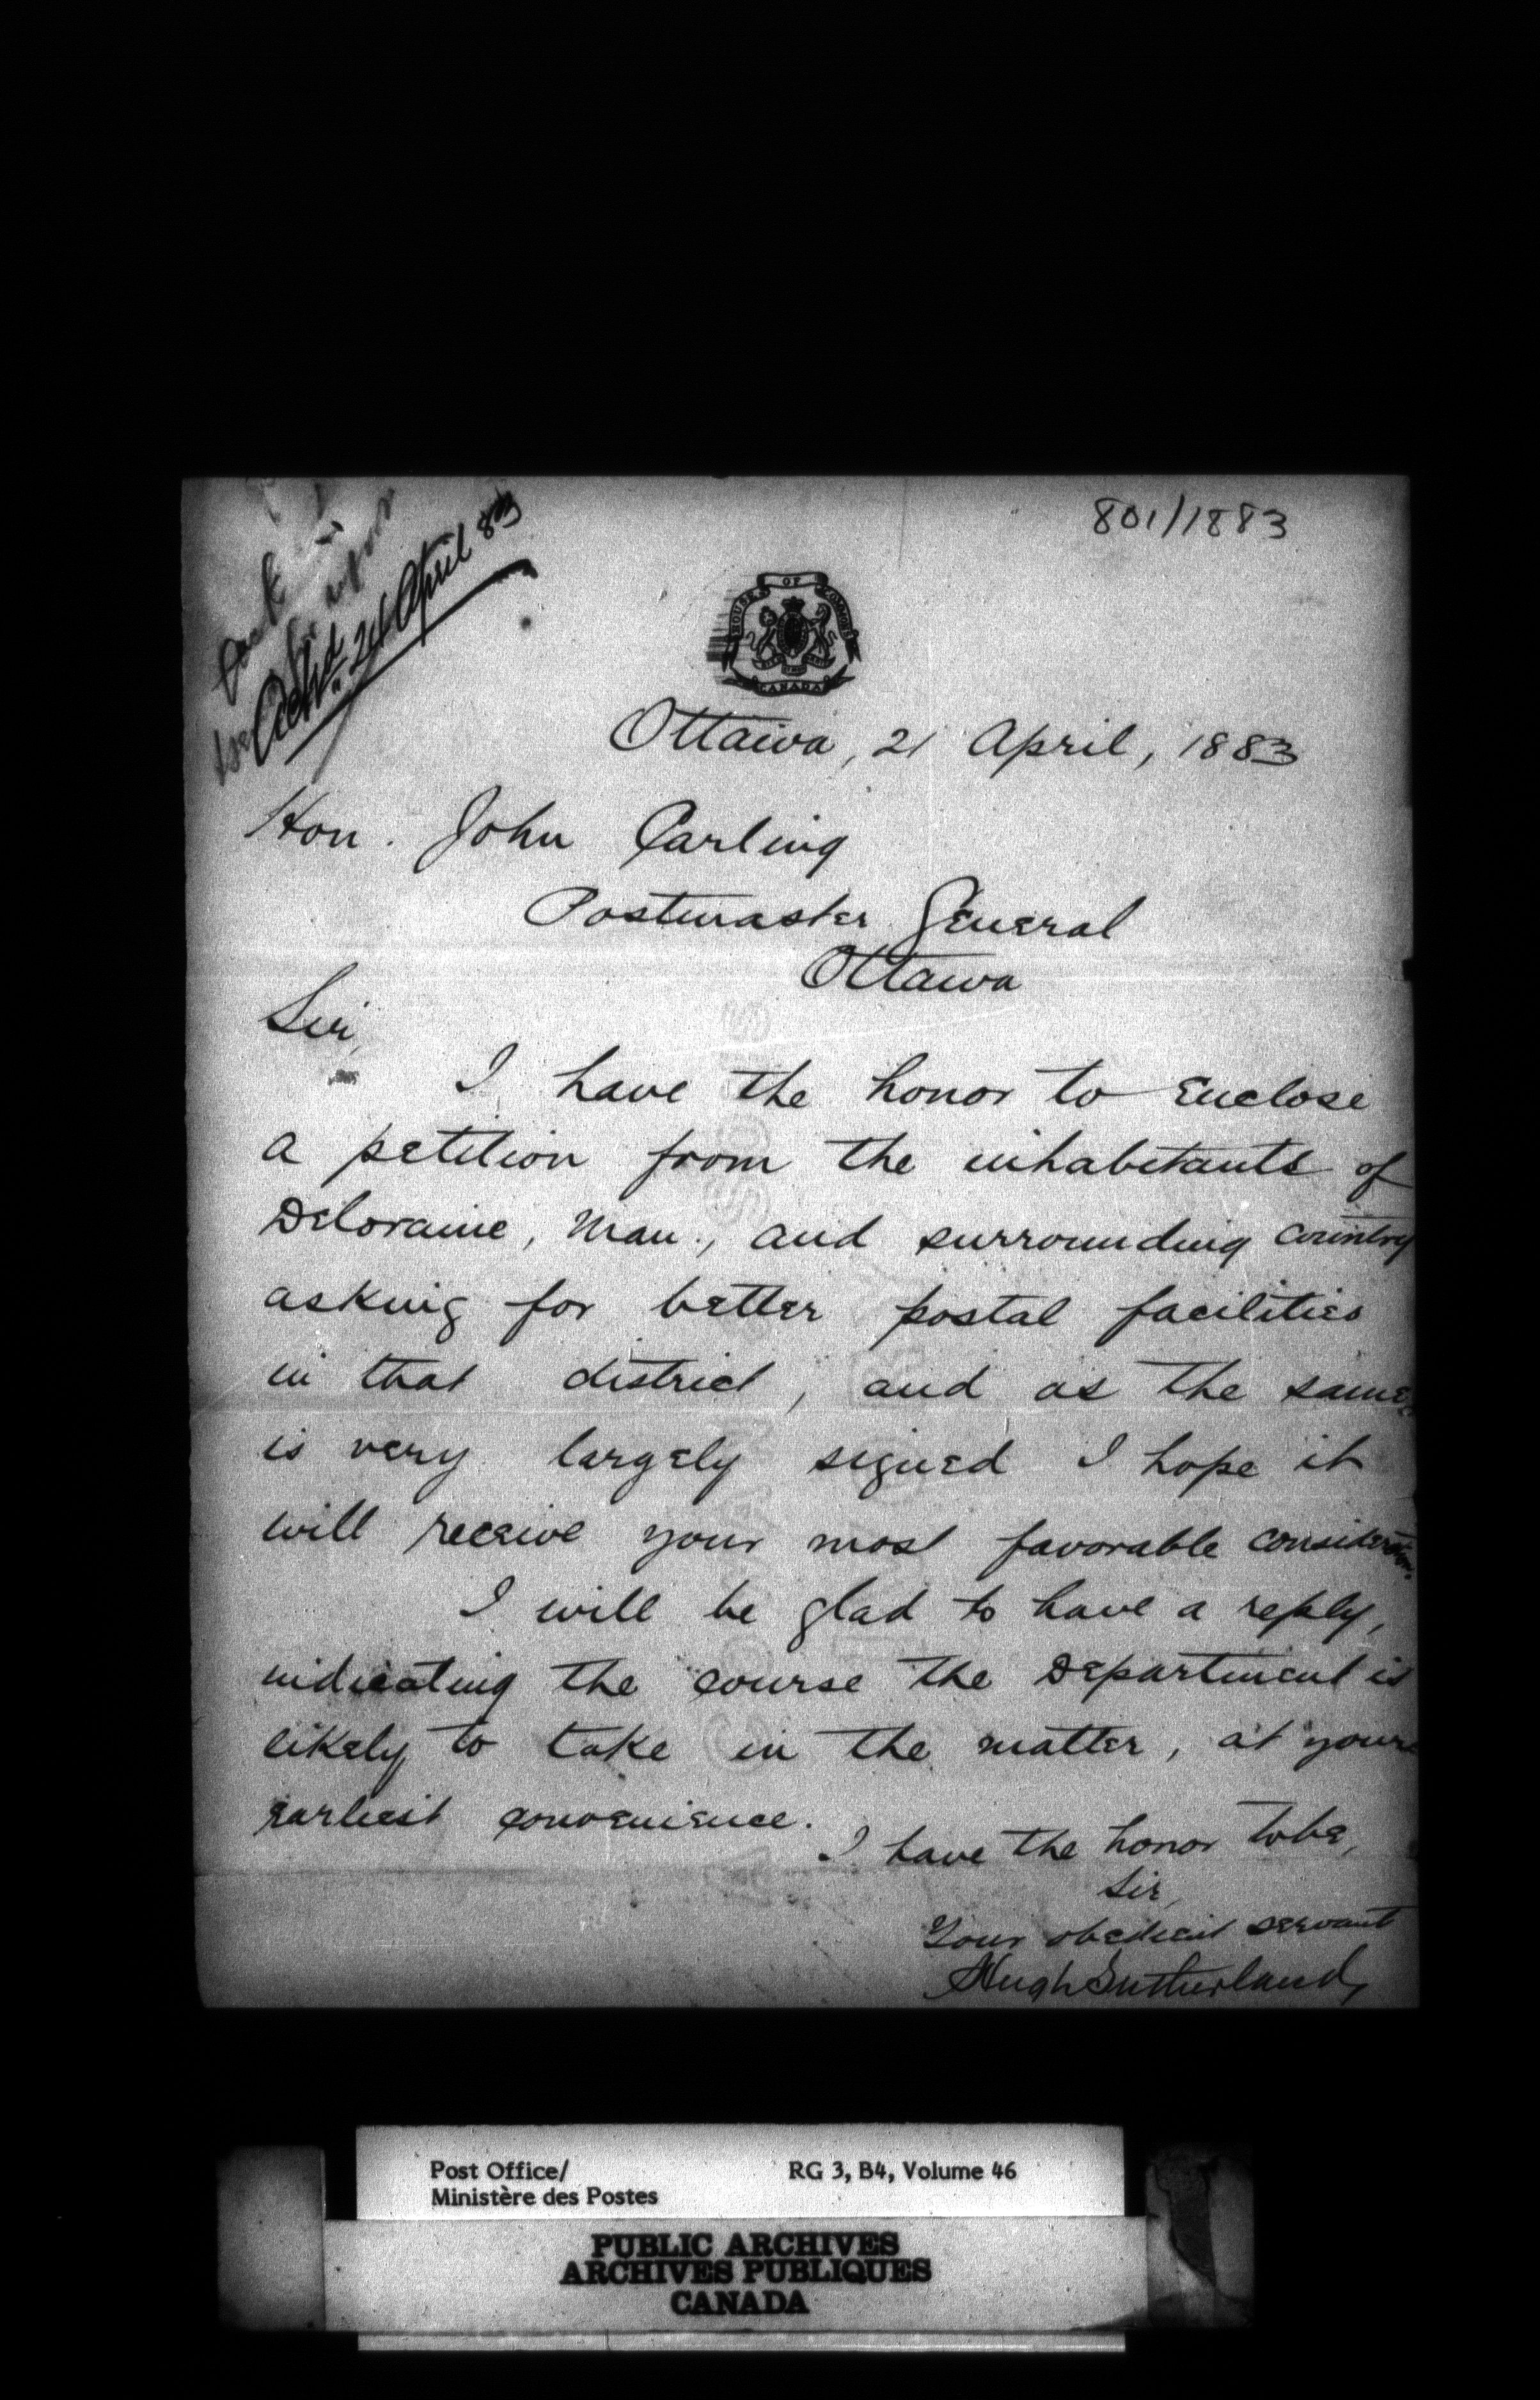 801/1883
Ackd 24 April 83
HOUSE OF COMMONS
CANADA
Ottawa, 21 April, 1883
Hon. John Carling
Postmaster General
Ottawa
Sir,
I have the honor to enclose
a petition from the inhabitants of
Deloraine, Man., and surrounding country
asking for better postal facilities
in that district, and as the same
is very largely signed I hope it
will receive your most favorable consideration.
I will be glad to have a reply,
indicating the course the Department is
likely to take in the matter, at your
earliest convenience.
I have the honor to be,
Sir,
Your obedient servant
Hugh Sutherland
Post Office/
Ministère des Postes
RG 3, B4, Volume 46
PUBLIC ARCHIVES
ARCHIVES PUBLIQUES
CANADA